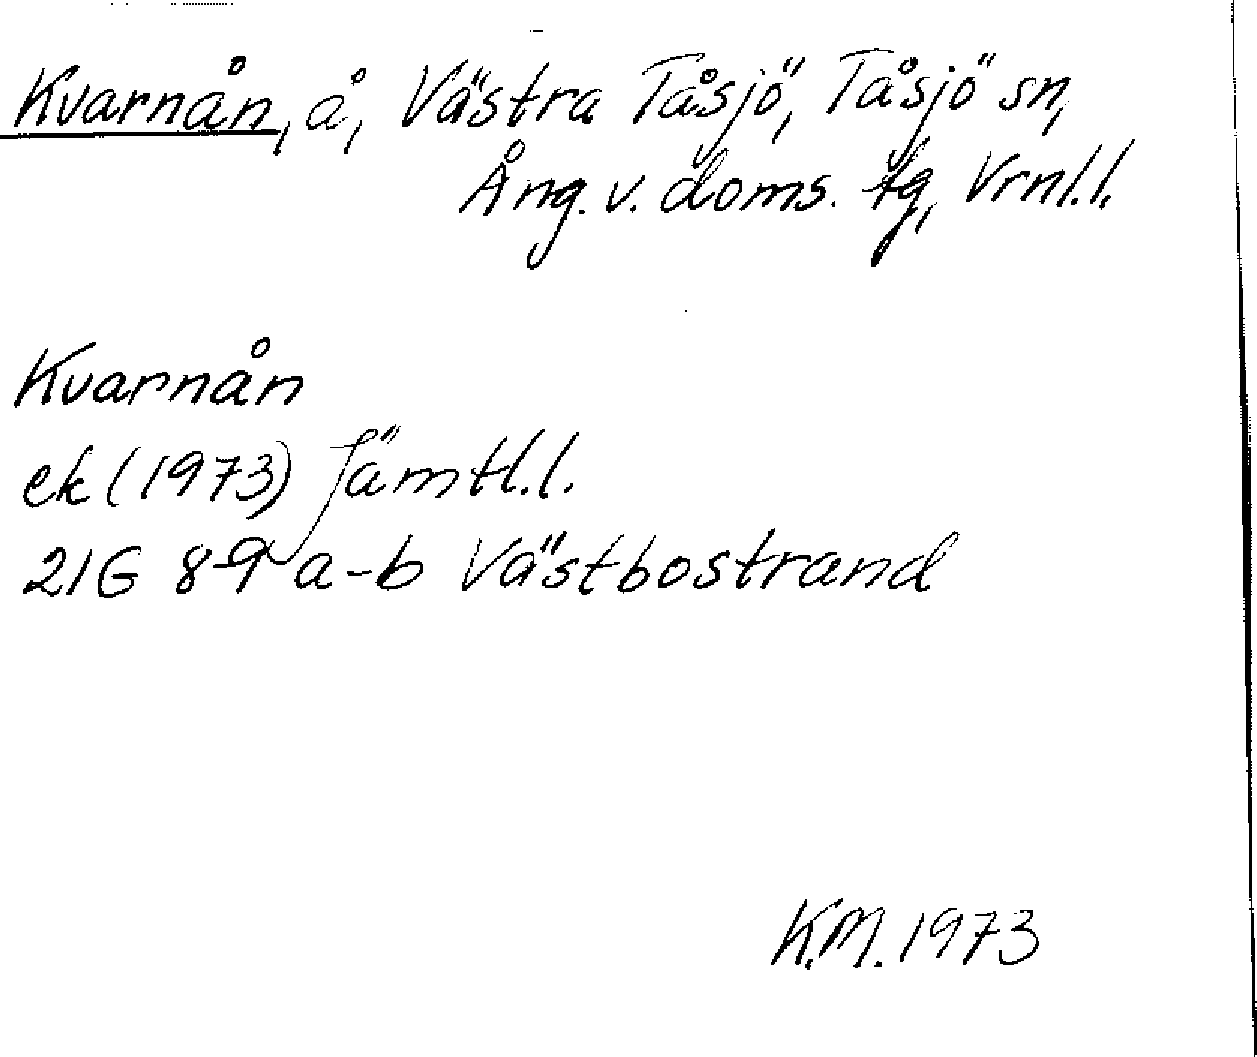 Kvarnån, å, Västra Tåsjö, Tåsjö sn,
Ång. v. doms. tg, Vrnl.l.
Kvarnån
ek (1973) Jämtl.l.
21G 8-9 a-b Västbostrand
K.M. 1973